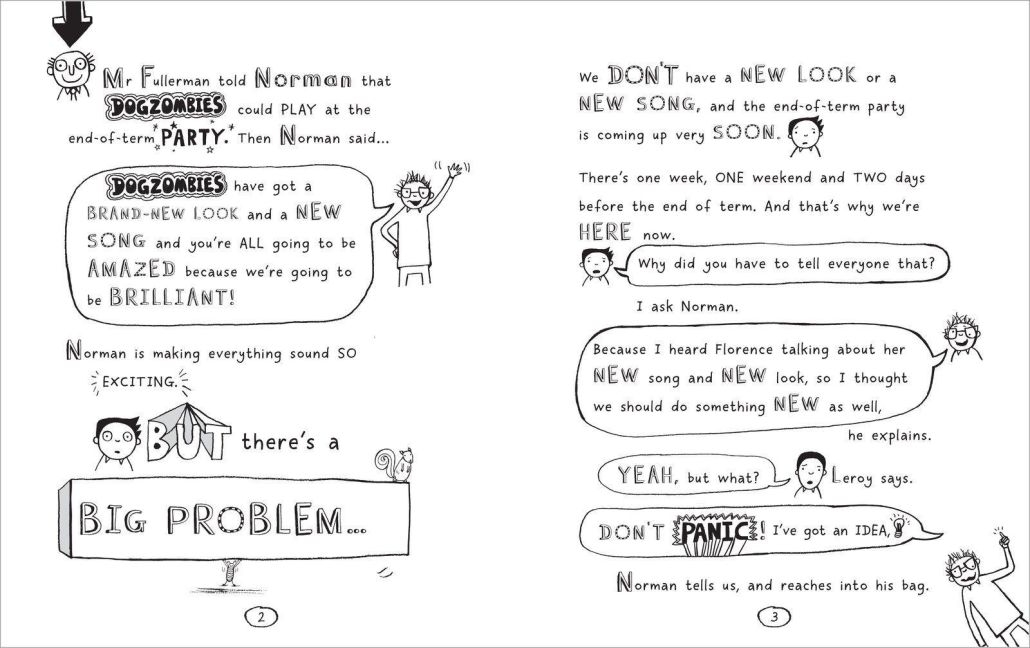 Mr Fullerman told Norman that
DOGZOMBIES could PLAY at the
end-of-term PARTY. Then Norman said...
DOGZOMBIES have got a
BRAND-NEW LOOK and a NEW
SONG and you're ALL going to be
AMAZED because we're going to
be BRILLIANT!
Norman is making everything sound SO
EXCITING.
BUT there's a
BIG PROBLEM...
2
We DON'T have a NEW LOOK or a
NEW SONG, and the end-of-term party
is coming up very SOON.
There's one week, ONE weekend and TWO days
before the end of term. And that's why we're
HERE now.
Why did you have to tell everyone that?
I ask Norman.
Because I heard Florence talking about her
NEW song and NEW look, so I thought
we should do something NEW as well,
he explains.
YEAH, but what?
Leroy says.
DON'T PANIC! I've got an IDEA,
Norman tells us, and reaches into his bag.
3